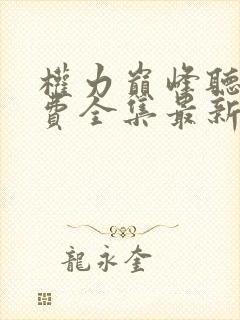 權力巔峰聽
費全集最新
龍永奎